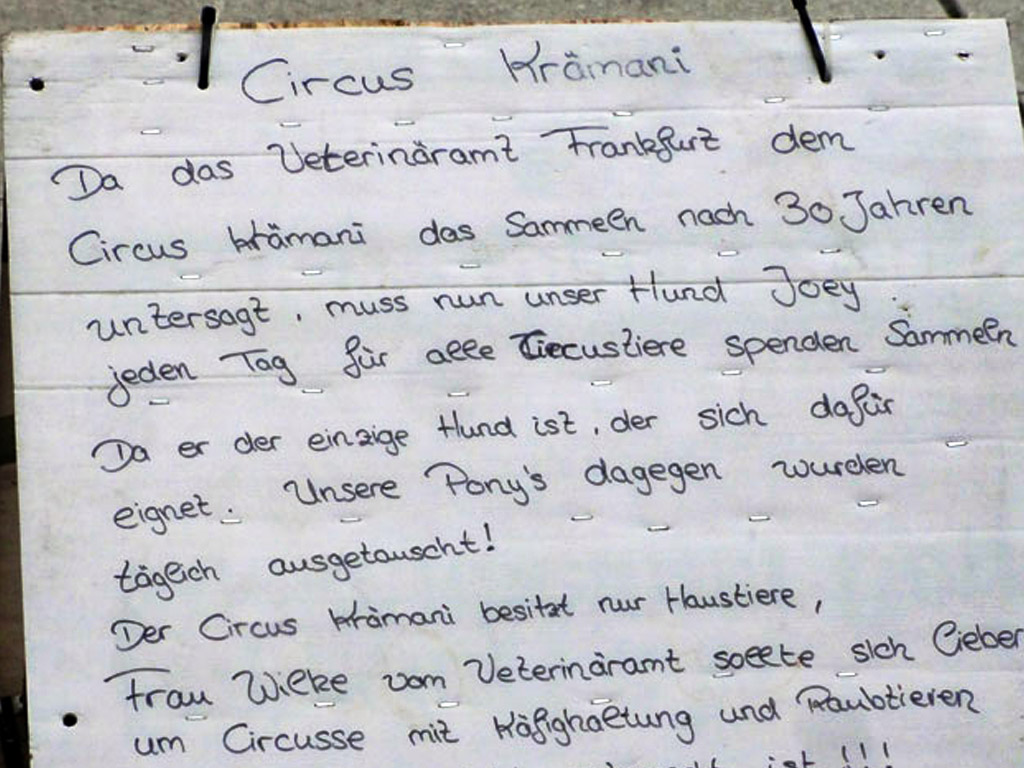 Circus Krämani
Da das Veterinäramt Frankfurt dem
Circus Krämani das Sammeln nach 30 Jahren
untersagt, muss nun unser Hund Joey
jeden Tag für alle Circustiere spenden Sammeln
Da er der einzige Hund ist, der sich dafür
eignet. Unsere Pony's dagegen wurden
täglich ausgetauscht!
Der Circus Krämani besitzt nur Haustiere,
Frau Wilke vom Veterinäramt sollte sich lieber
um Circusse mit Käfighaltung und Raubtieren
ist!!!